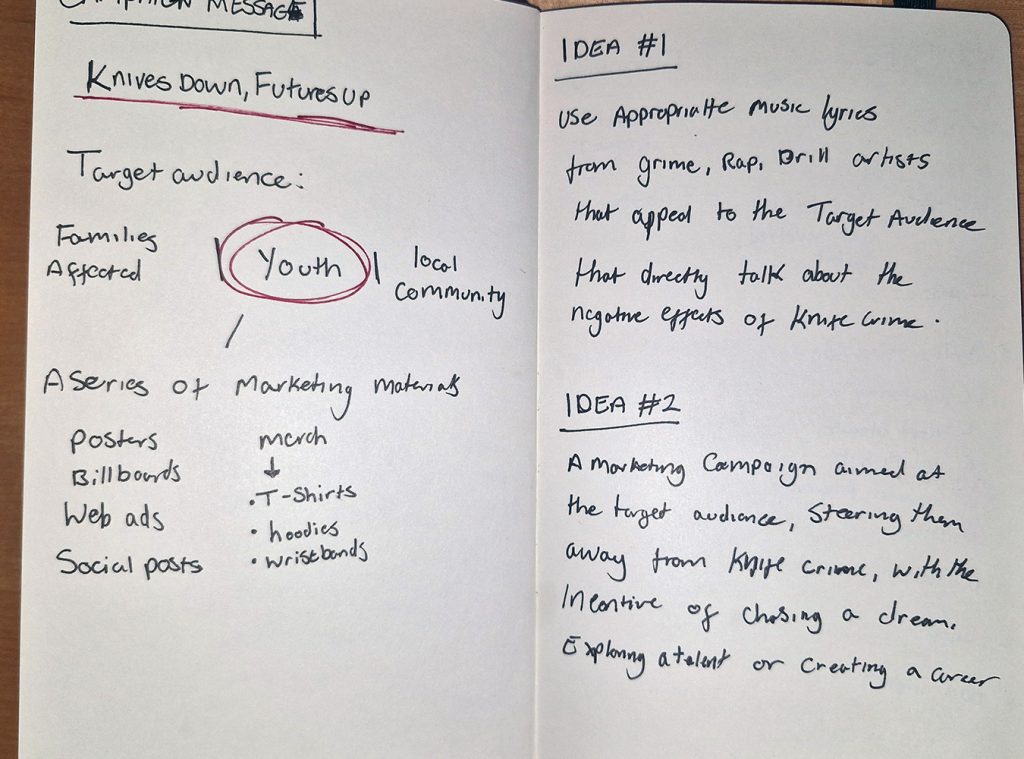 CAMPAIGN MESSAGE
Knives Down, Futures up
Target audience:
Families
Affected
Youth
local
community
A series of marketing materials
posters
Billboards
Web ads
Social posts
merch
• T-Shirts
• hoodies
• wristbands
IDEA #1
Use Appropriatte music lyrics
from grime, Rap, Drill artists
that appeal to the Target Audience
that directly talk about the
negative effects of Knife crime.
IDEA #2
A marketing Campaign aimed at
the target audience, steering them
away from Knife crime, with the
Incentive of chasing a dream.
Exploring a talent or creating a career